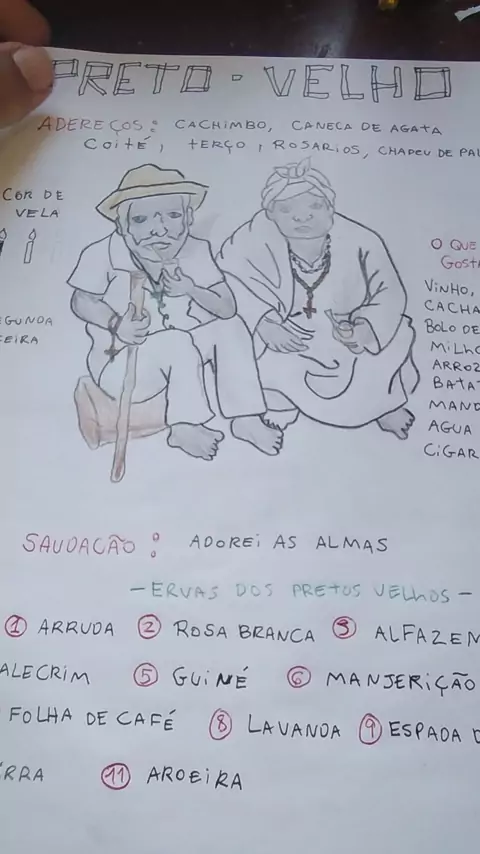 PRETO - VELHO
ADEREÇOS: CACHIMBO, CANECA DE AGATA
COITÉ, TERÇO, ROSARIOS, CHAPEU DE PAL
COR DE
VELA
EGUNDA
FEIRA
O QUE
GOST
VINHO,
CACHA
BOLO DE
MILHO
ARROZ
BATAT
MAND
AGUA
CIGAR
SAUDAÇÃO: ADOREI AS ALMAS
- ERVAS DOS PRETOS VELHOS -
1 ARRUDA 2 ROSA BRANCA 3 ALFAZEM
ALECRIM 5 GUINÉ 6 MANJERIÇÃO
FOLHA DE CAFÉ 8 LAVANDA 9 ESPADA D
ERRA 11 AROEIRA